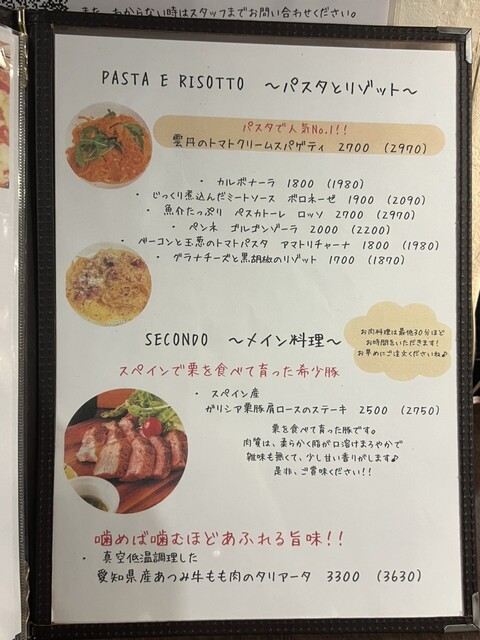 また、わからない時はスタッフまでお問い合わせください。
PASTA E RISOTTO ～パスタとリゾット～
パスタで人気No.1!!
雲丹のトマトクリームスパゲティ 2700 (2970)
・ カルボナーラ 1800 (1980)
・ じっくり煮込んだミートソース ボロネーゼ 1900 (2090)
・ 魚介たっぷり ペスカトーレ ロッソ 2700 (2970)
・ ペンネ ゴルゴンゾーラ 2000 (2200)
・ ベーコンと玉葱のトマトパスタ アマトリチャーナ 1800 (1980)
・ グラナチーズと黒胡椒のリゾット 1700 (1870)
SECONDO ～メイン料理～
お肉料理は最低30分ほど
お時間をいただきます!
お早めにご注文くださいね♪
スペインで栗を食べて育った希少豚
・ スペイン産
ガリシア栗豚肩ロースのステーキ 2500 (2750)
栗を食べて育った豚です。
肉質は、柔らかく脂が口溶けまろやかで
雑味も無くて、少し甘い香りがします♪
是非、ご賞味ください!!
噛めば噛むほどあふれる旨味!!
・ 真空低温調理した
愛知県産あつみ牛もも肉のタリアータ 3300 (3630)